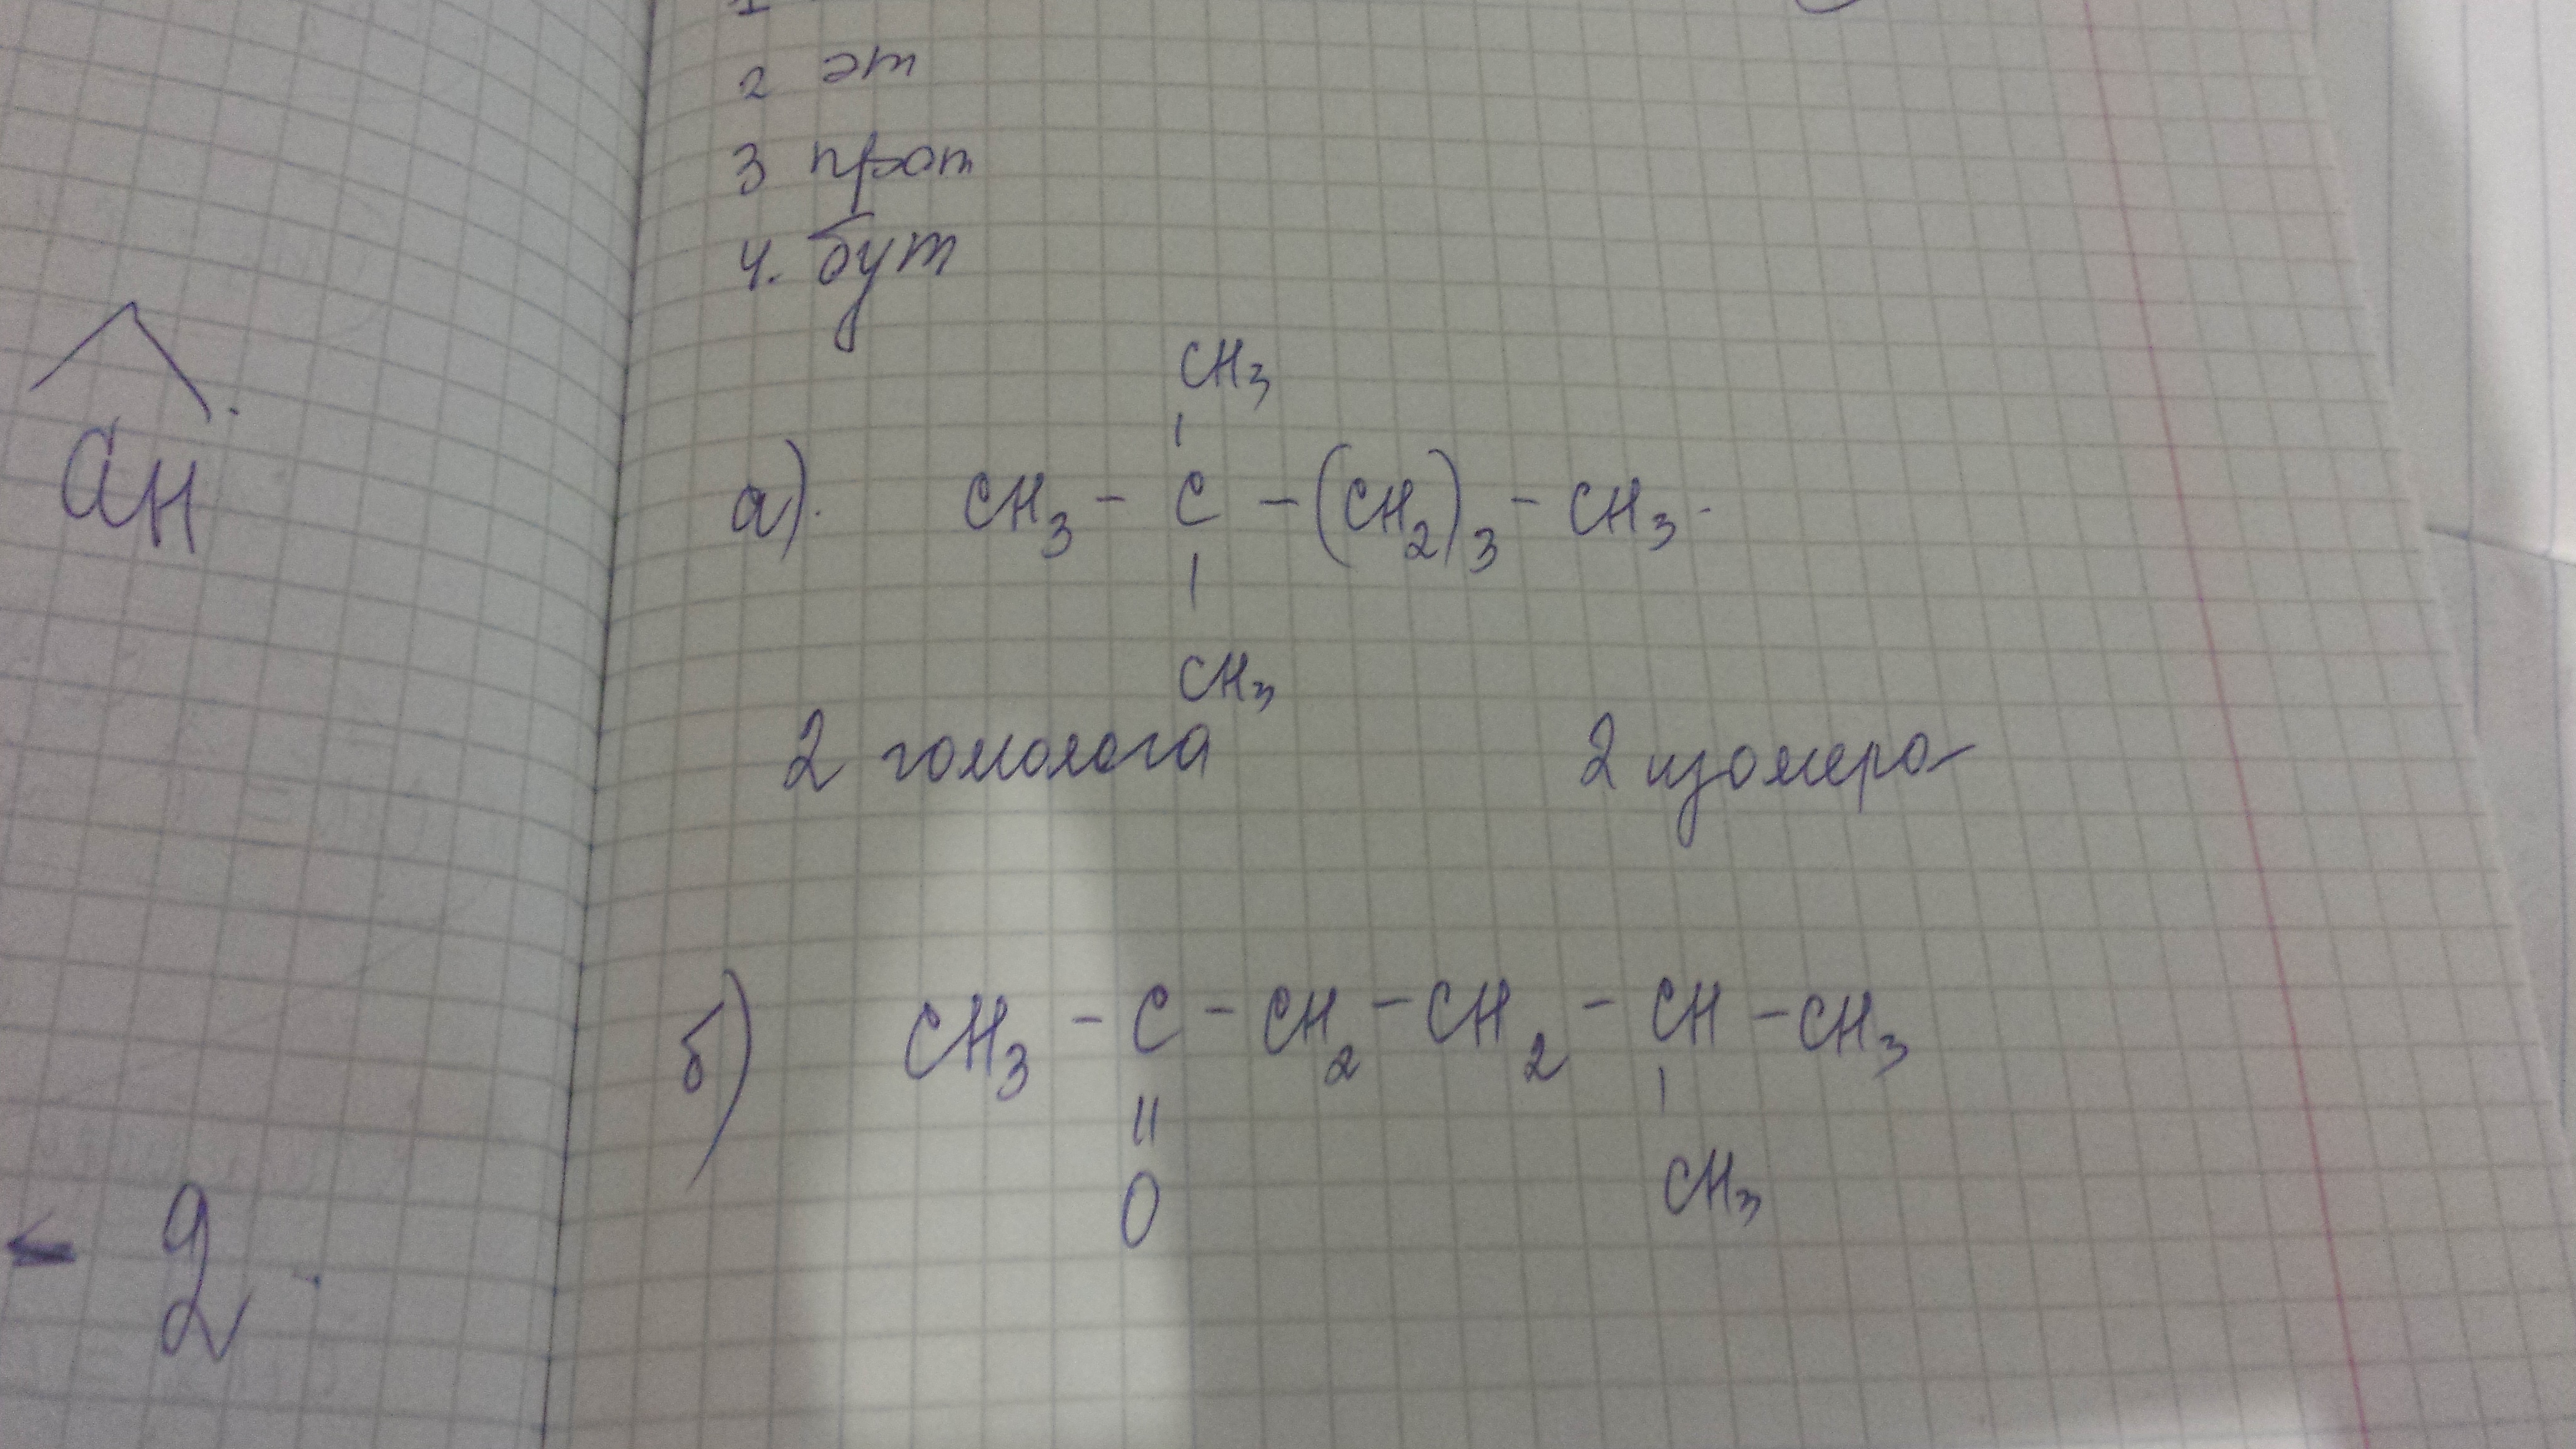 2 эт
3 проп
4. бут
ан
а). CH3 - C - (CH2)3 - CH3
CH3
CH3
2 гомолога 2 изомера
б) CH3 - C - CH2 - CH2 - CH - CH3
O CH3
- 2